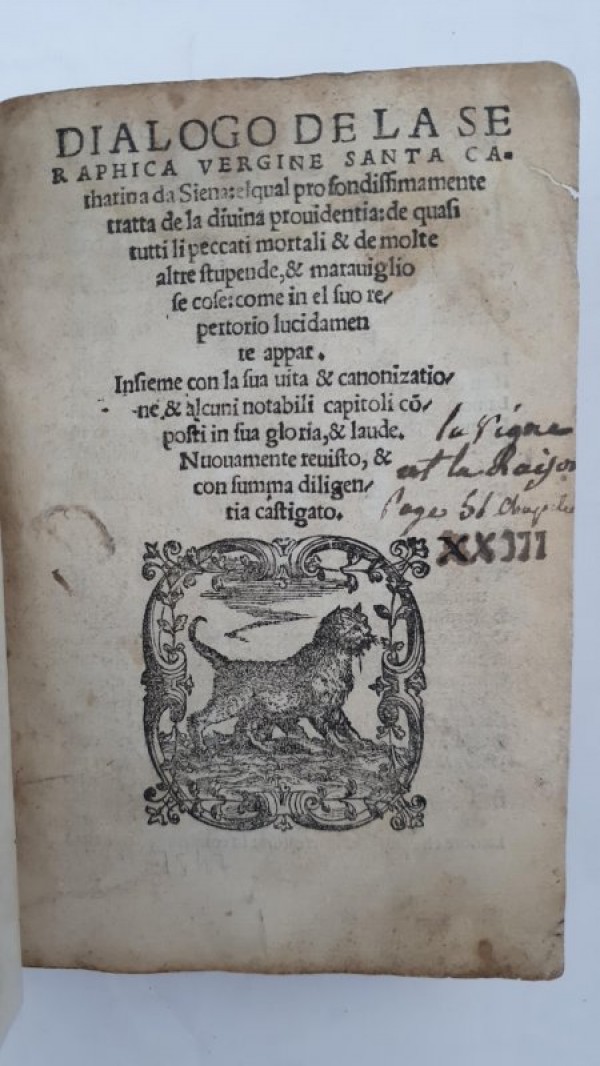 DIALOGO DE LA SE
RAPHICA VERGINE SANTA CA-
tharina da Siena: elqual profondissimamente
tratta de la diuina prouidentia: de quasi
tutti li peccati mortali & de molte
altre stupende, & marauiglio
se cose: come in el suo re/
pertorio lucidamen
te appar.
Insieme con la sua uita & canonizatio/
ne, & alcuni notabili capitoli cō/
posti in sua gloria, & laude.
Nuouamente reuisto, &
con summa diligen/
tia castigato.
la vigne
et la Raison
Page 51
XXIII